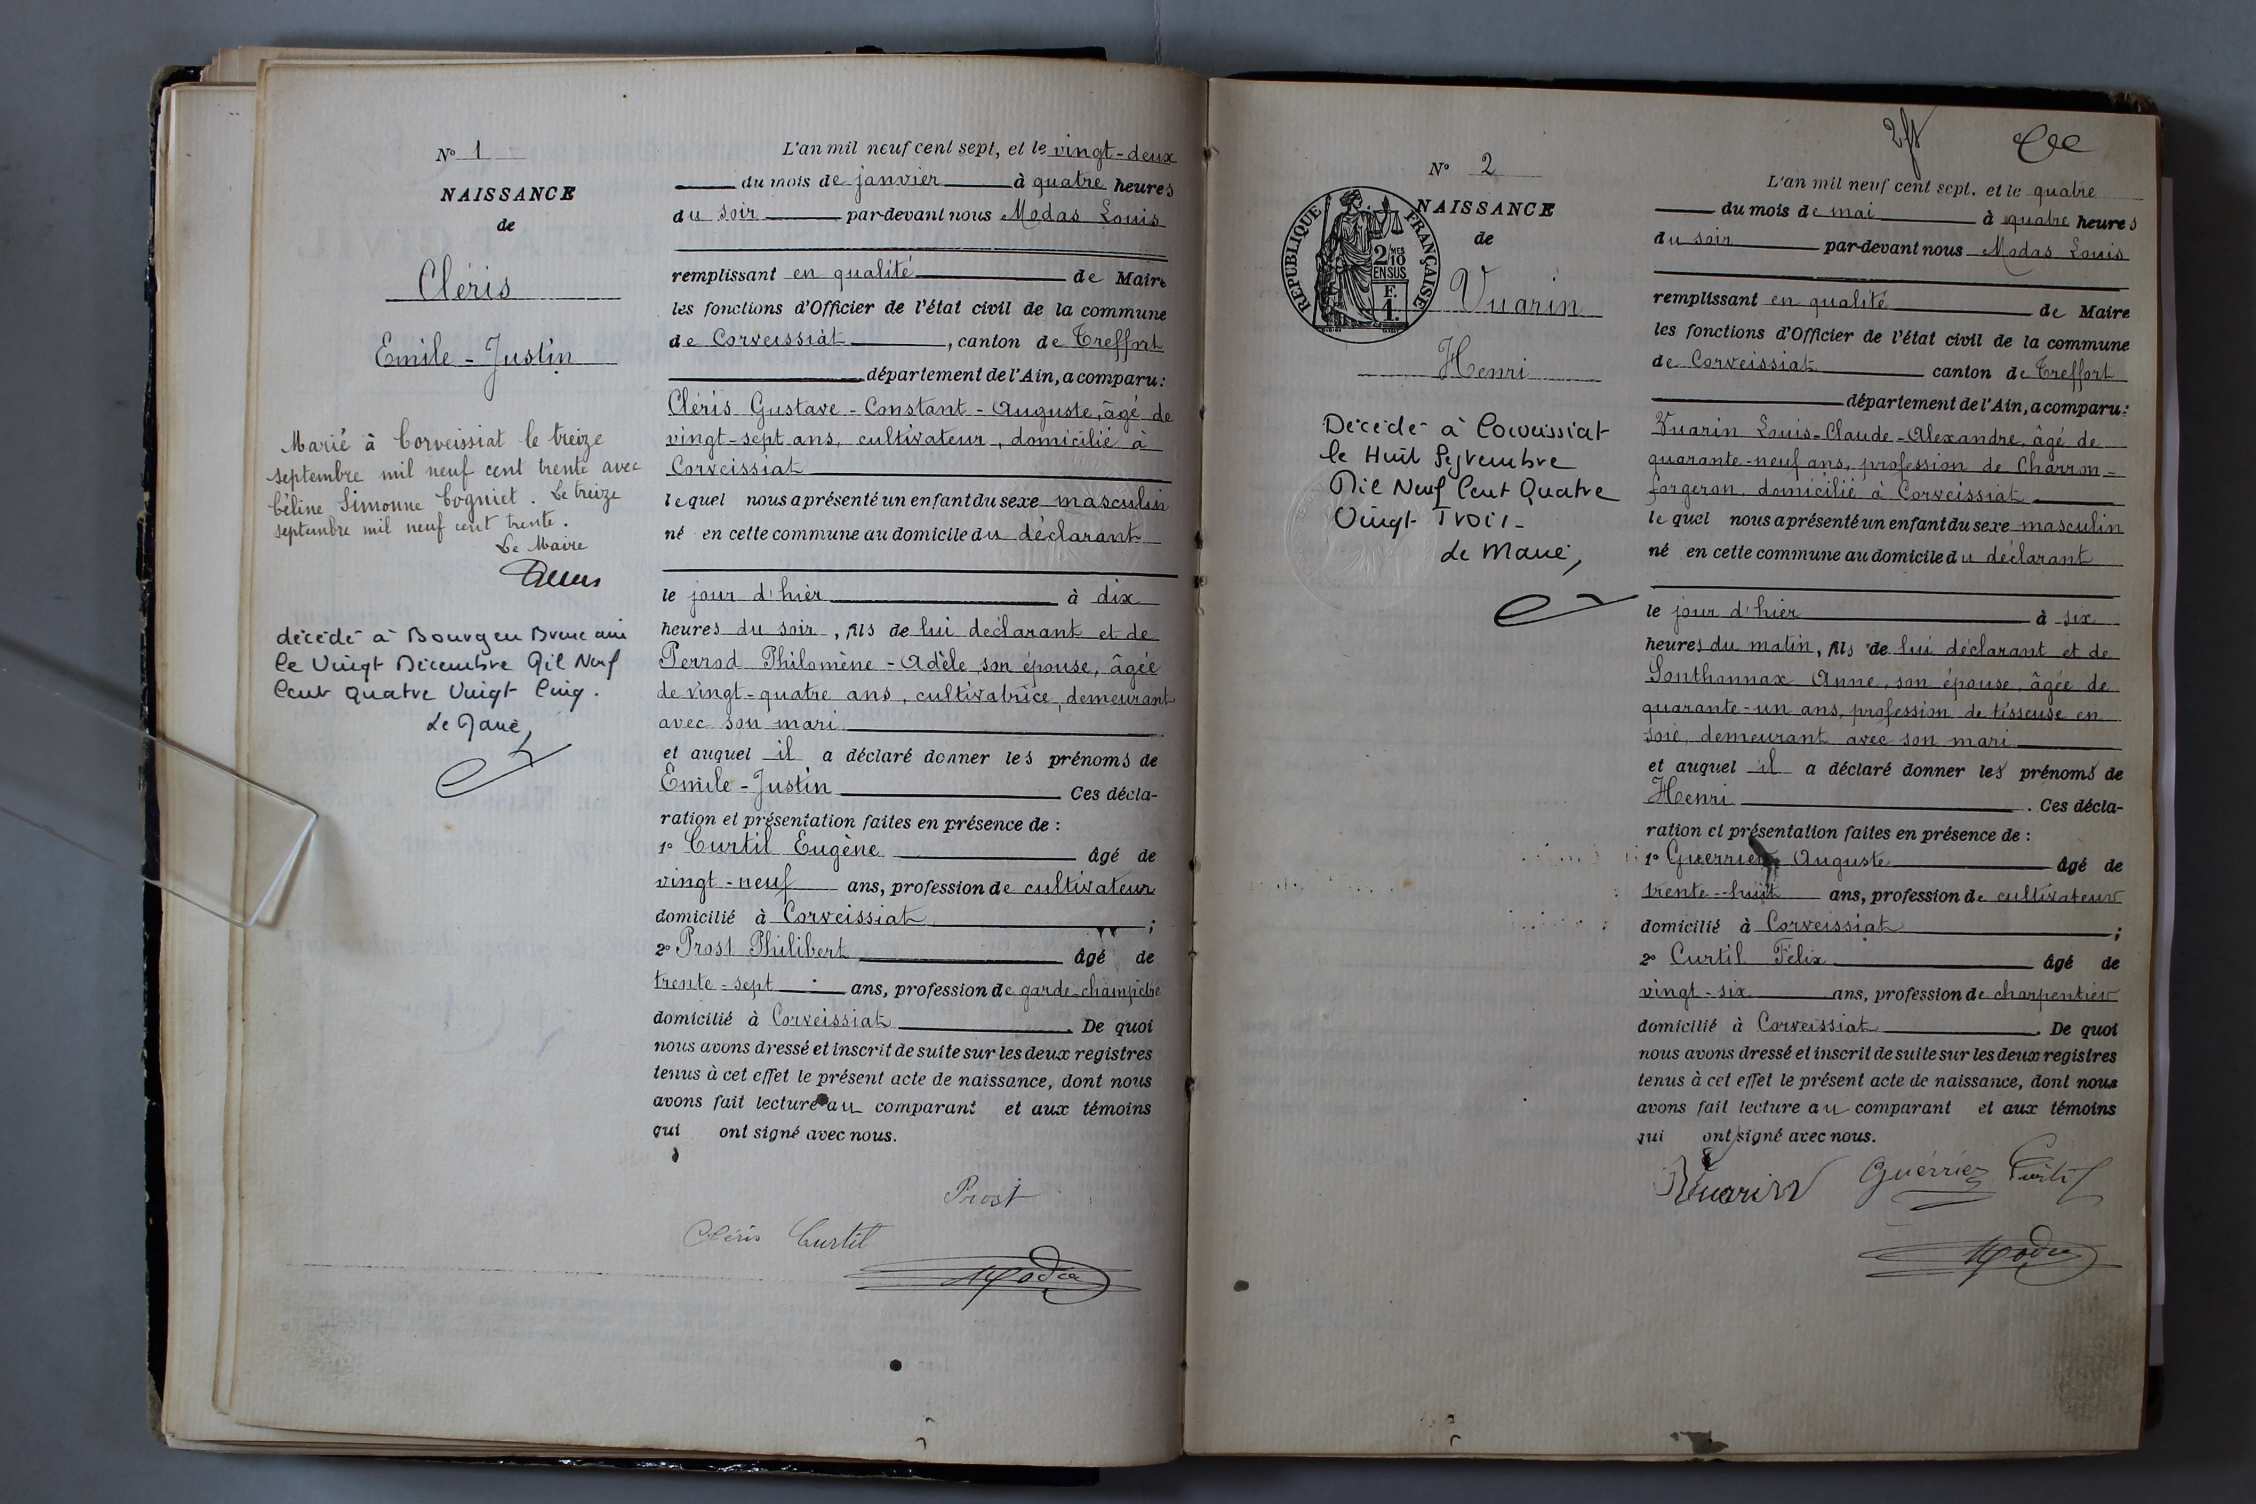 N° 1
NAISSANCE
de
Cléris
Emile-Justin
Marié à Corveissiat le treize
septembre mil neuf cent trente avec
Céline Simonne Cogniet. Le treize
septembre mil neuf cent trente.
Le Maire
décédé à Bourg en Bresse ain
le Vingt Décembre Mil Neuf
Cent Quatre Vingt Cinq.
Le Maire,
L'an mil neuf cent sept, et le vingt-deux
du mois de janvier à quatre heures
du soir par-devant nous Modas Louis
remplissant en qualité de Maire
les fonctions d'Officier de l'état civil de la commune
de Corveissiat, canton de Treffort
département de l'Ain, a comparu:
Cléris Gustave-Constant-Auguste, âgé de
vingt-sept ans, cultivateur, domicilié à
Corveissiat
lequel nous a présenté un enfant du sexe masculin
né en cette commune au domicile du déclarant
le jour d'hier à dix
heures du soir, fils de lui déclarant et de
Perrod Philomène-Adèle, son épouse, âgée
de vingt-quatre ans, cultivatrice, demeurant
avec son mari
et auquel il a déclaré donner les prénoms de
Emile-Justin Ces décla-
ration et présentation faites en présence de :
1° Curtil Eugène âgé de
vingt-neuf ans, profession de cultivateur
domicilié à Corveissiat ;
2° Prost Philibert âgé de
trente-sept ans, profession de garde-champêtre
domicilié à Corveissiat. De quoi
nous avons dressé et inscrit de suite sur les deux registres
tenus à cet effet le présent acte de naissance, dont nous
avons fait lecture au comparant et aux témoins
qui ont signé avec nous.
Prost
Cléris Curtil
Modas
2f
N° 2
NAISSANCE
de
RÉPUBLIQUE FRANÇAISE
2 MES
10
EN SUS
F.
1.
Vuarin
Henri
Décédé à Corveissiat
le Huit Septembre
Mil Neuf Cent Quatre
Vingt Trois-
Le Maire,
L'an mil neuf cent sept, et le quatre
du mois de mai à quatre heures
du soir par-devant nous Modas Louis
remplissant en qualité de Maire
les fonctions d'Officier de l'état civil de la commune
de Corveissiat canton de Treffort
département de l'Ain, a comparu:
Vuarin Louis-Claude-Alexandre, âgé de
quarante-neuf ans, profession de Charron-
forgeron, domicilié à Corveissiat
lequel nous a présenté un enfant du sexe masculin
né en cette commune au domicile du déclarant
le jour d'hier à six
heures du matin, fils de lui déclarant et de
Sonthonnax Anne, son épouse, âgée de
quarante-un ans, profession de tisseuse en
soie, demeurant avec son mari
et auquel il a déclaré donner les prénoms de
Henri. Ces décla-
ration et présentation faites en présence de :
1° Guerrier Auguste âgé de
trente-huit ans, profession de cultivateur
domicilié à Corveissiat ;
2° Curtil Félix âgé de
vingt-six ans, profession de charpentier
domicilié à Corveissiat. De quoi
nous avons dressé et inscrit de suite sur les deux registres
tenus à cet effet le présent acte de naissance, dont nous
avons fait lecture au comparant et aux témoins
qui ont signé avec nous.
Vuarin Guérrier Curtil
Modas